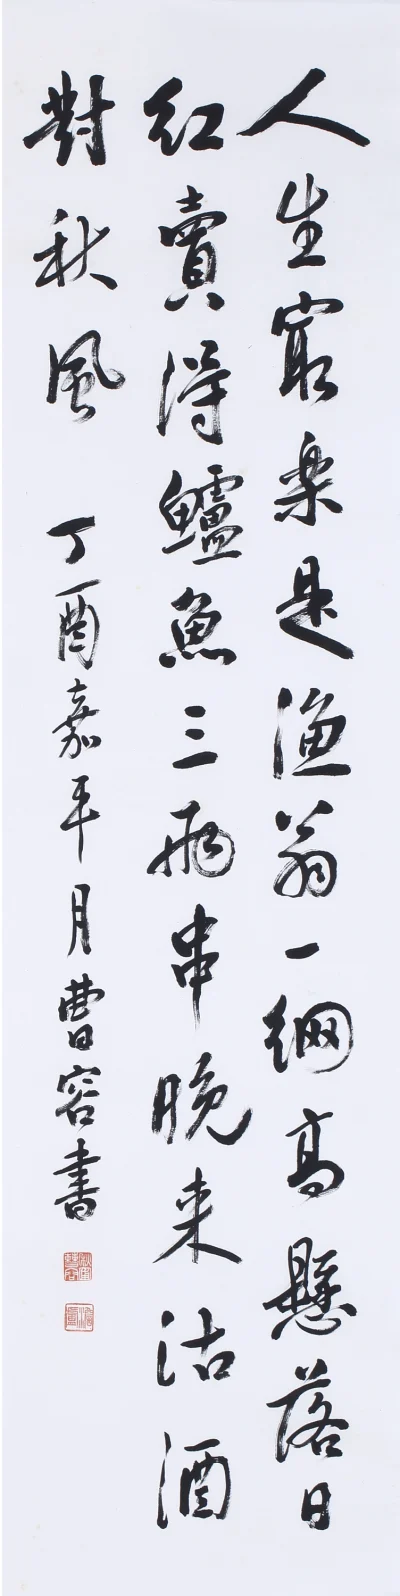 人生最樂是漁翁一網高懸落日
紅賣得鱸魚三兩串晚來沽酒
對秋風 丁酉嘉平月曹容書